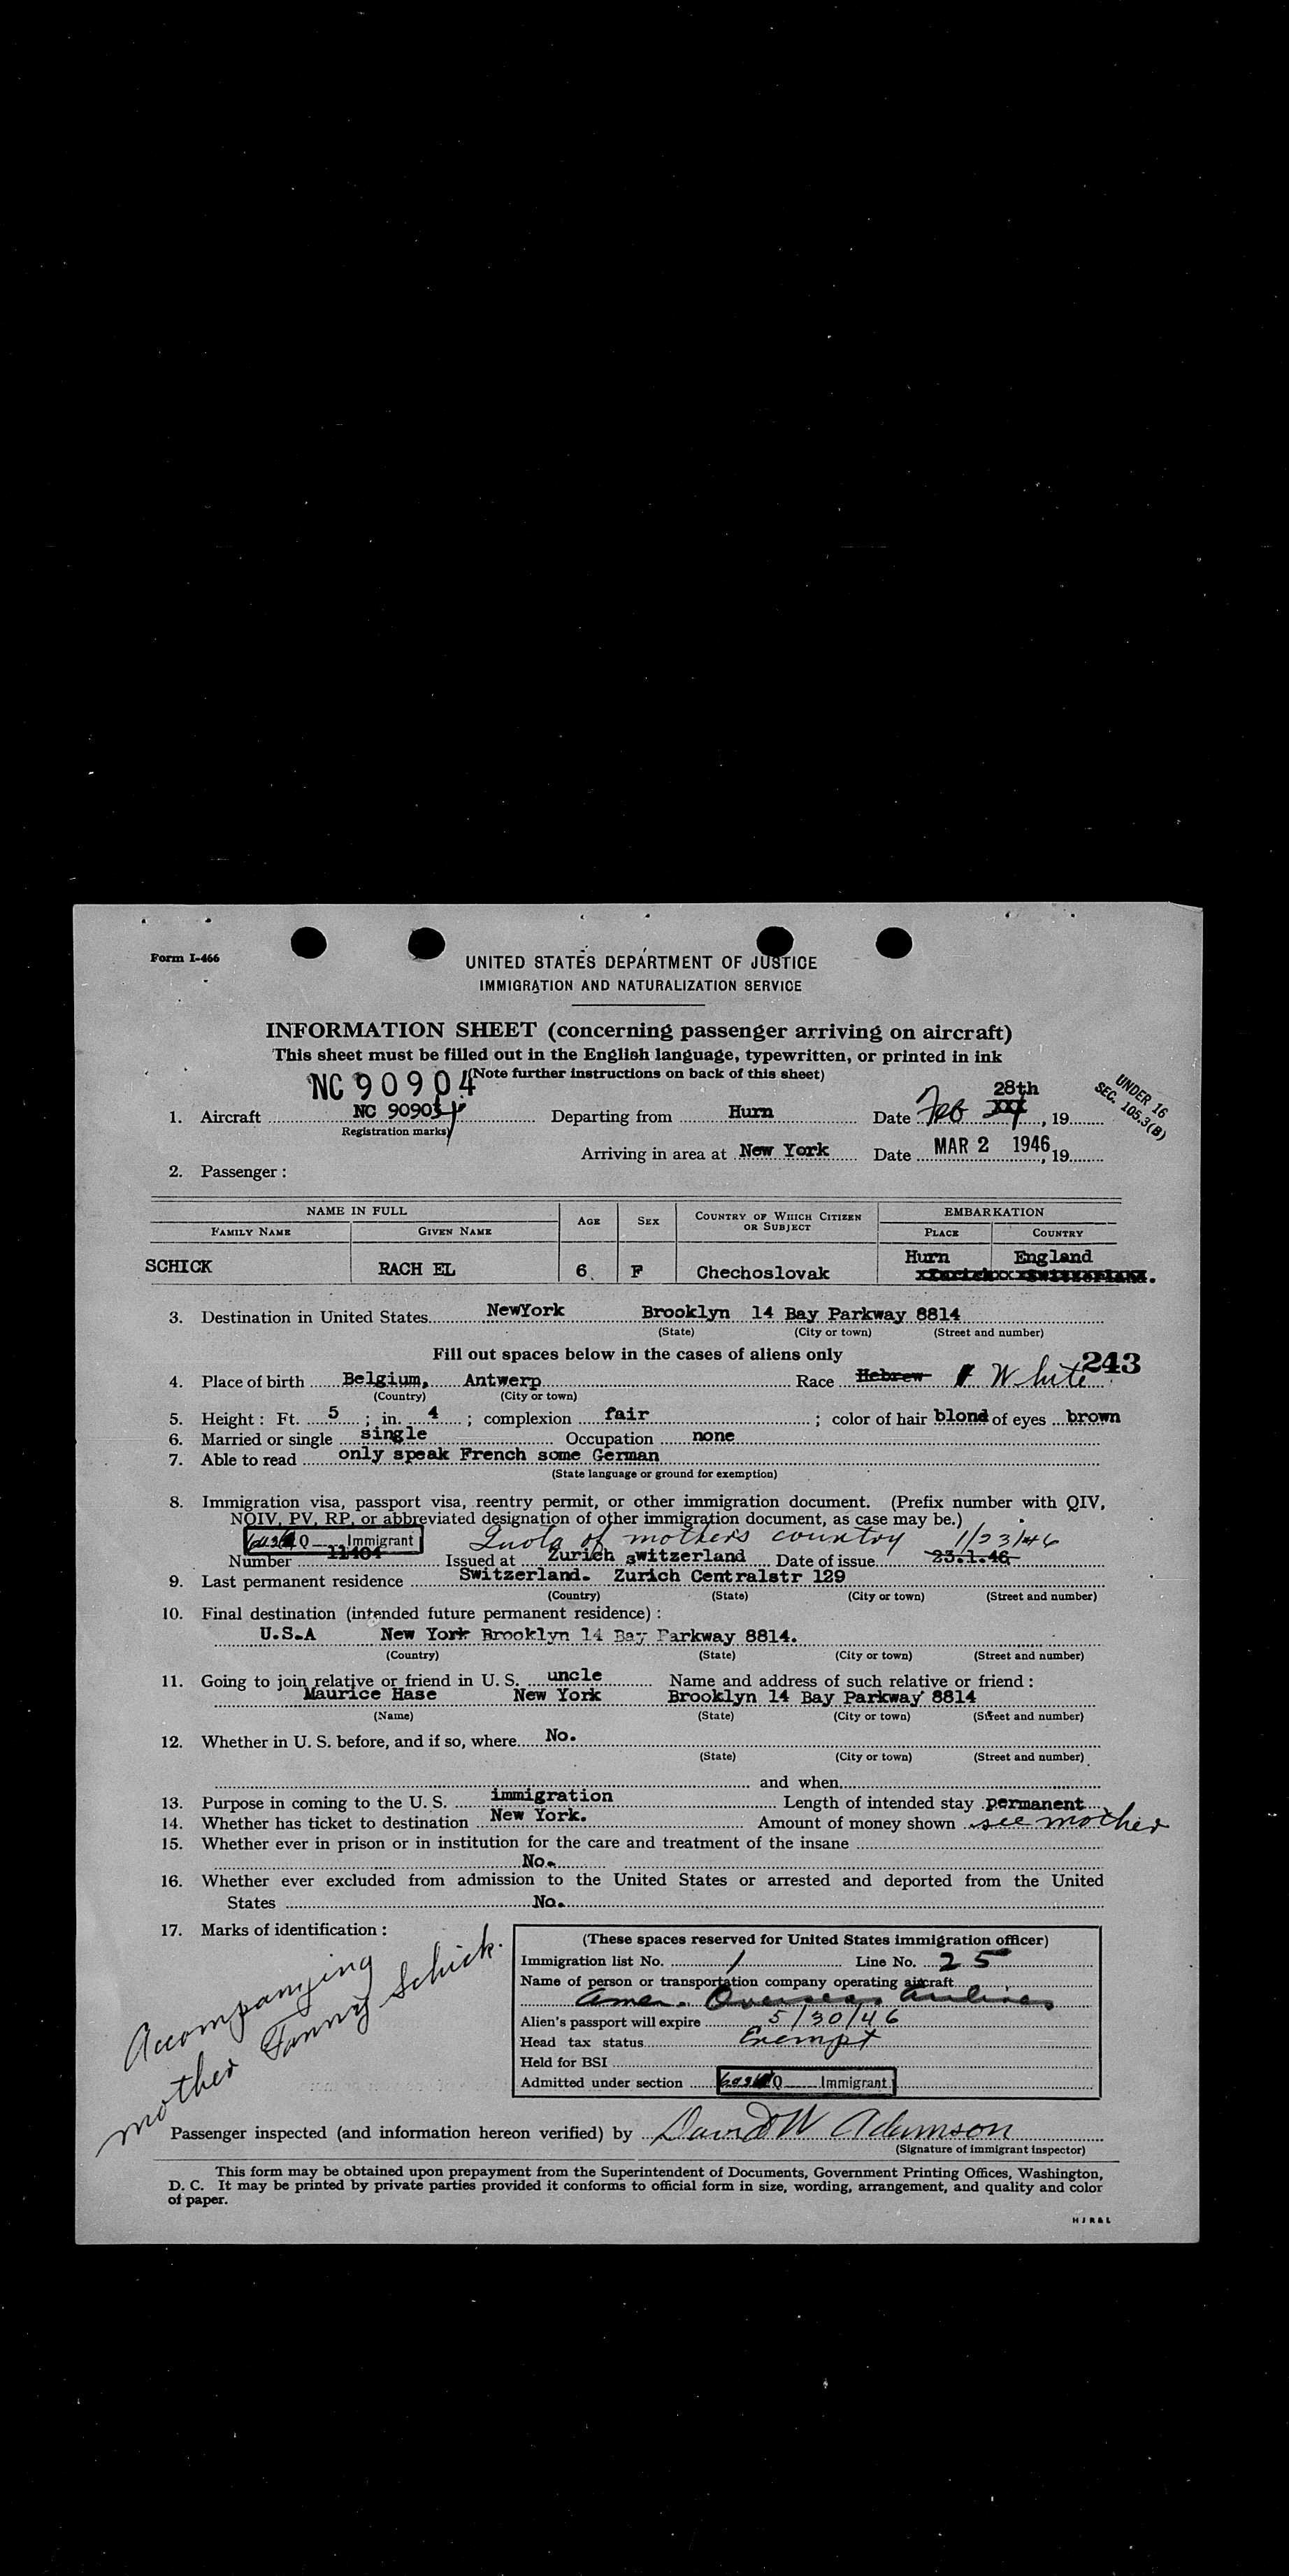 Form I-466
UNITED STATES DEPARTMENT OF JUSTICE
IMMIGRATION AND NATURALIZATION SERVICE
INFORMATION SHEET (concerning passenger arriving on aircraft)
This sheet must be filled out in the English language, typewritten, or printed in ink
(Note further instructions on back of this sheet)
NC 90904
UNDER 16
SEC. 105.3(B)
1. Aircraft NC 90904 Departing from Hurn Date Feb 28th, 19
(Registration marks)
Arriving in area at New York Date MAR 2 1946, 19
2. Passenger :
NAME IN FULL AGE SEX COUNTRY OF WHICH CITIZEN OR SUBJECT EMBARKATION
FAMILY NAME GIVEN NAME PLACE COUNTRY
SCHICK RACH EL 6 F Chechoslovak Hurn England
3. Destination in United States NewYork Brooklyn 14 Bay Parkway 8814
(State) (City or town) (Street and number)
Fill out spaces below in the cases of aliens only
243
4. Place of birth Belgium, Antwerp Race Hebrew White
(Country) (City or town)
5. Height : Ft. 5 ; in. 4 ; complexion fair ; color of hair blond of eyes brown
6. Married or single single Occupation none
7. Able to read only speak French some German
(State language or ground for exemption)
8. Immigration visa, passport visa, reentry permit, or other immigration document. (Prefix number with QIV,
NQIV, PV, RP, or abbreviated designation of other immigration document, as case may be.)
Q Immigrant Quota of mothers country 1/23/46
Number 11404 Issued at Zurich switzerland Date of issue 23.1.46
9. Last permanent residence Switzerland. Zurich Centralstr 129
(Country) (State) (City or town) (Street and number)
10. Final destination (intended future permanent residence) :
U.S.A New York Brooklyn 14 Bay Parkway 8814.
(Country) (State) (City or town) (Street and number)
11. Going to join relative or friend in U. S. uncle Name and address of such relative or friend :
Maurice Hase New York Brooklyn 14 Bay Parkway 8814
(Name) (State) (City or town) (Street and number)
12. Whether in U. S. before, and if so, where No.
(State) (City or town) (Street and number)
and when
13. Purpose in coming to the U. S. immigration Length of intended stay permanent
14. Whether has ticket to destination New York. Amount of money shown see mother
15. Whether ever in prison or in institution for the care and treatment of the insane
No.
16. Whether ever excluded from admission to the United States or arrested and deported from the United
States No.
17. Marks of identification :
Accompanying
mother Fanny Schick.
(These spaces reserved for United States immigration officer)
Immigration list No. 1 Line No. 25
Name of person or transportation company operating aircraft
Amer. Overseas Airlines
Alien's passport will expire 5/30/46
Head tax status Exempt
Held for BSI
Admitted under section Q Immigrant
Passenger inspected (and information hereon verified) by David W Adamson
(Signature of immigrant inspector)
This form may be obtained upon prepayment from the Superintendent of Documents, Government Printing Offices, Washington,
D. C. It may be printed by private parties provided it conforms to official form in size, wording, arrangement, and quality and color
of paper.
H J R & L